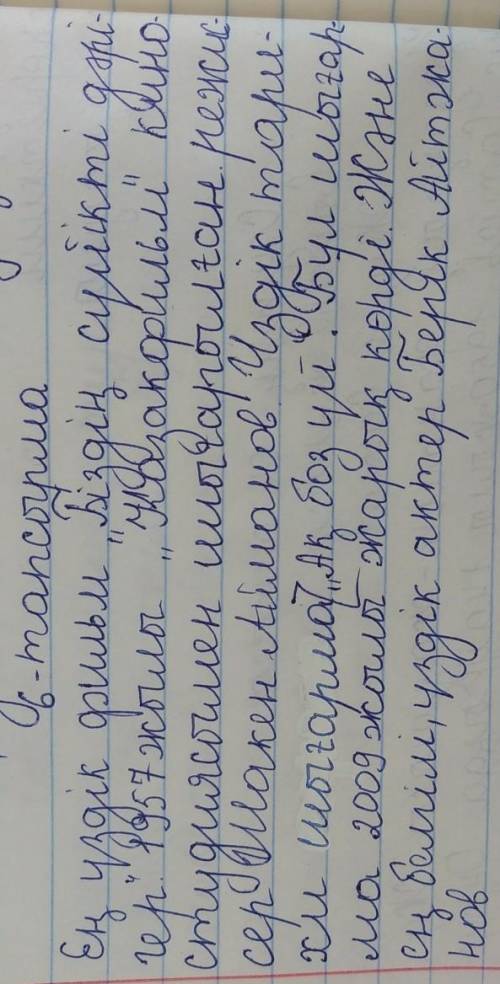 6-тапсырма
Ең үздік фильм "Біздің сүйікті дәрі-
гер". 1957 жылы "Қазақфильм" кино-
студиясымен шығарылған режис-
сер Шакен Айманов. Үздік тари-
хи шығарма "Ақ боз үй". Бұл шығар-
ма 2009 жылы жарық көрді. Және
ең белгілі, үздік актер Берік Айтжа-
нов